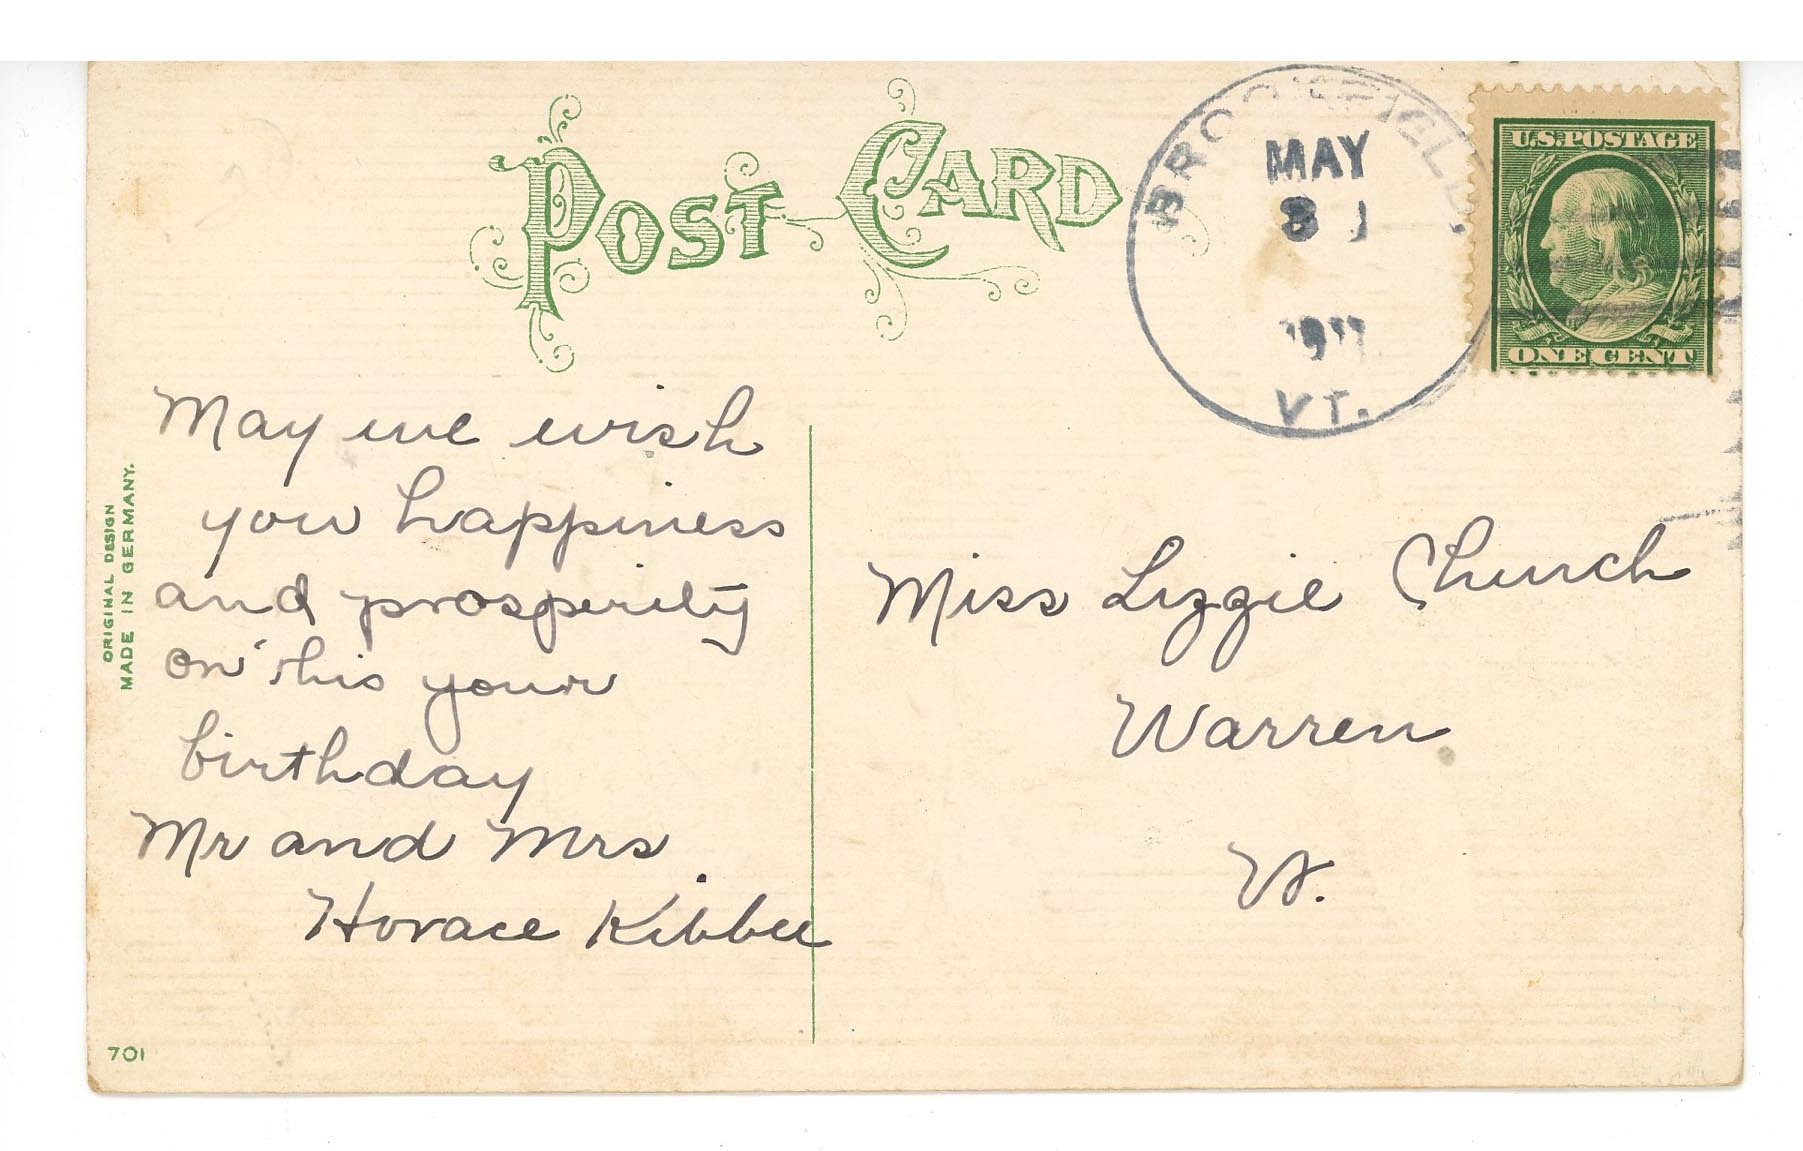 POST CARD
BROOKFIELD,
MAY
1911
VT.
U.S. POSTAGE
ONE CENT
May we wish
you happiness
and prosperity
on this your
birthday
Mr and Mrs
Horace Kibbee
Miss Lizzie Church
Warren
Vt.
ORIGINAL DESIGN
MADE IN GERMANY.
701